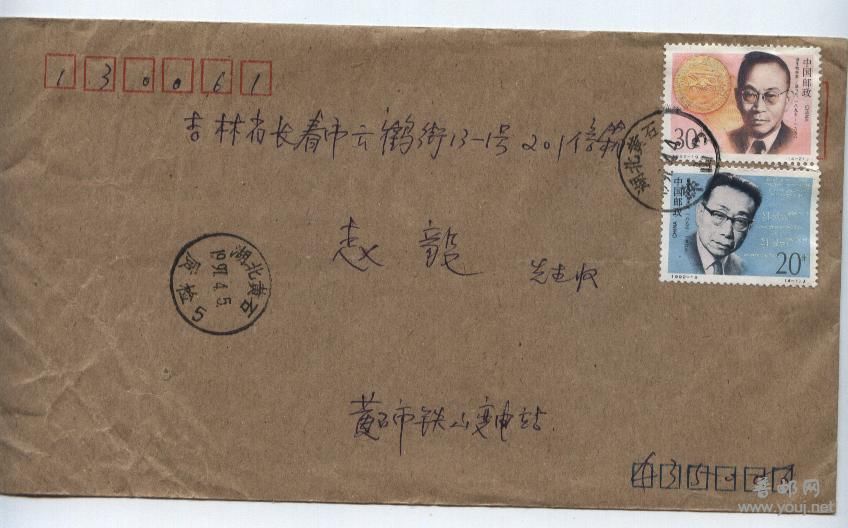 130061
吉林省长春市云鹤街13-1号201信箱
赵 先生收
黄石市铁山变电站
中国邮政
CHINA
30分
中国邮政
CHINA
20分
湖北黄石
1997.4.5
湖北黄石
铁山
普邮网
www.youj.net